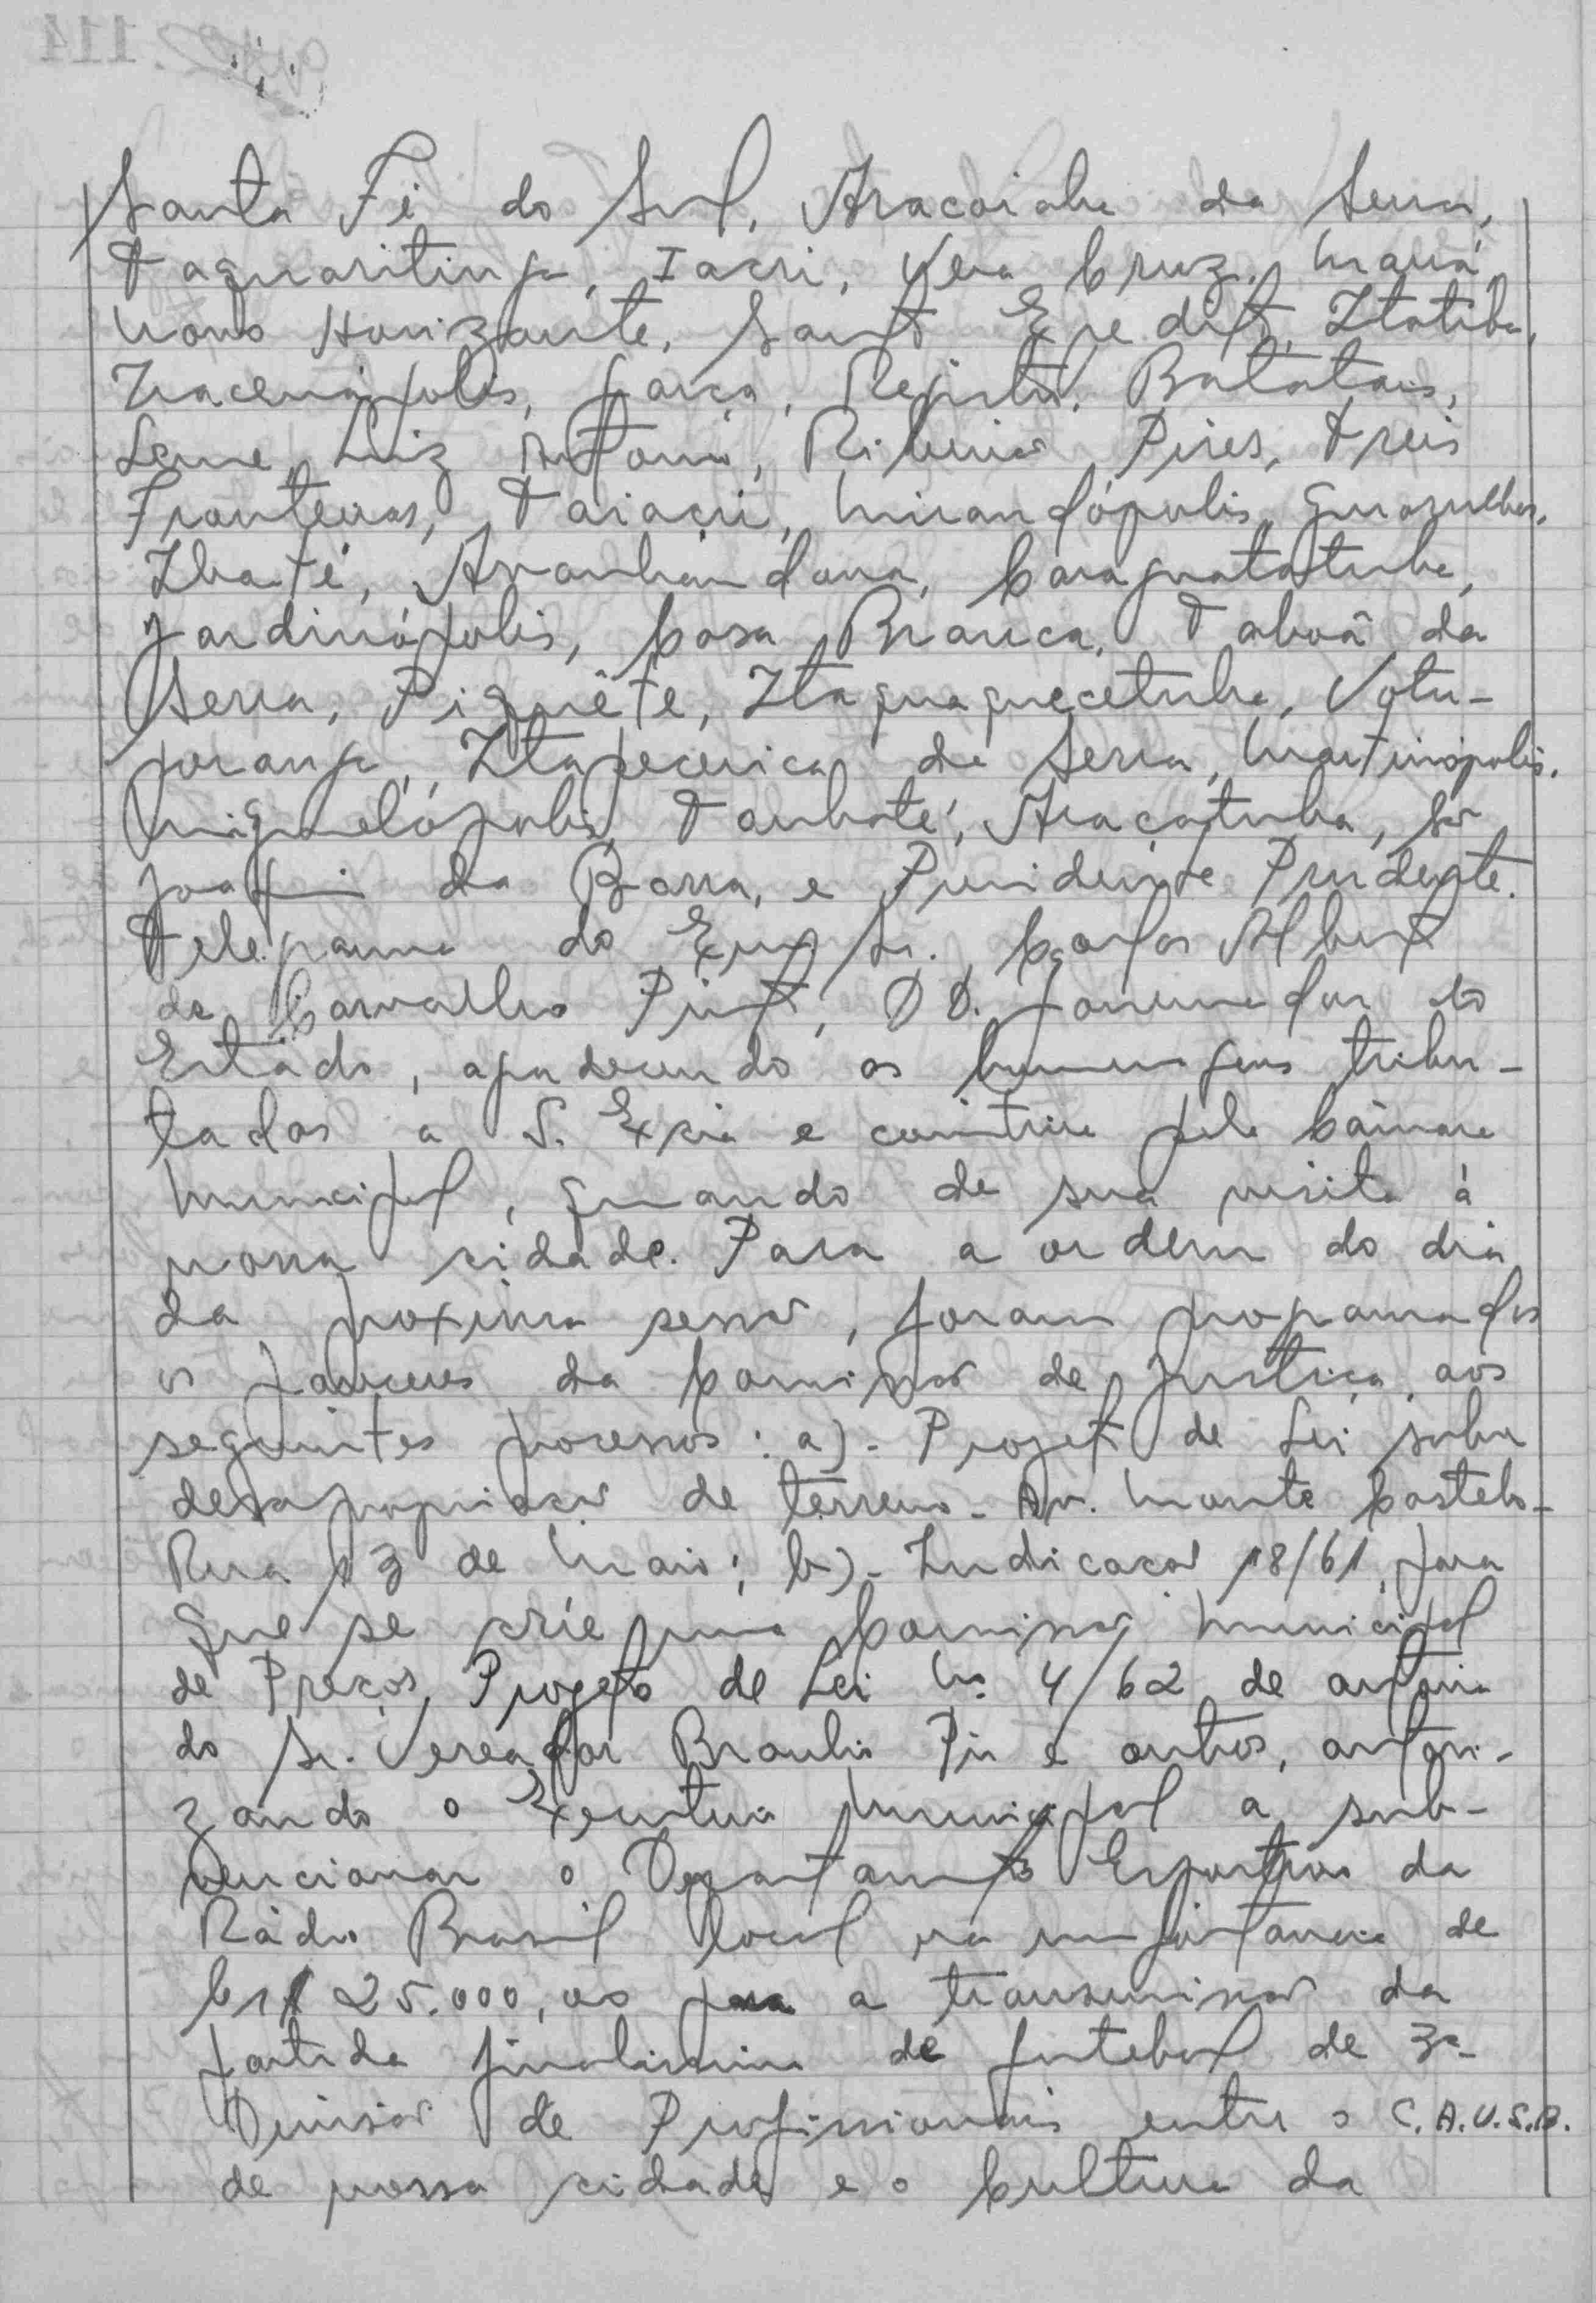 Santa Fé do Sul, Araçoiaba da Serra,
Taquaritinga, Iacri, Vera Cruz, Mauá,
Novo Horizonte, Santo Expedito, Itatiba,
Iracemápolis, Garça, Registro, Batatais,
Leme, Luiz Antonio, Ribeirão Pires, Treis
Fronteiras, Taiaçú, Mirandópolis, Guarulhos,
Ibaté, Avanhandava, Caraguatatuba,
Jardinópolis, Casa Branca, Taboã da
Serra, Piquête, Itaquaquecetuba, Votu-
poranga, Itapecerica da Serra, Martinópolis,
Miguelópolis, Taubaté, Araçatuba, São
Joaquim da Barra, e Presidente Prudente.
Telegrama do Exmo Sr. Carlos Alberto
de Carvalho Pinto, DD. Governador do
Estado, agradecendo as homenagens tribu-
tadas a S. Excia e comitiva pela Câmara
Municipal, quando de sua visita à
nossa cidade. Para a ordem do dia
da proxima sessão, foram programados
os pareceres da Comissão de Justiça, aos
seguintes processos: a)- Projeto de Lei sobre
desapropriação de terreno - Av. Monte Castelo-
Rua 13 de Maio; b)- Indicação 18/61, para
que se crie uma Comissão Municipal
de Preços, Projeto de Lei Nº 4/62 de autoria
do Sr. Vereador Braulio Pio e outros, autori-
zando o Executivo Municipal a sub-
vencionar o Departamento Esportivo da
Rádio Brasil local na importancia de
Cr$ 25.000,00 para a transmissão da
partida finalissima de futebol de 3ª
Divisão de Profissionais entre o C.A.U.S.B.
de nossa cidade e o Cultura da